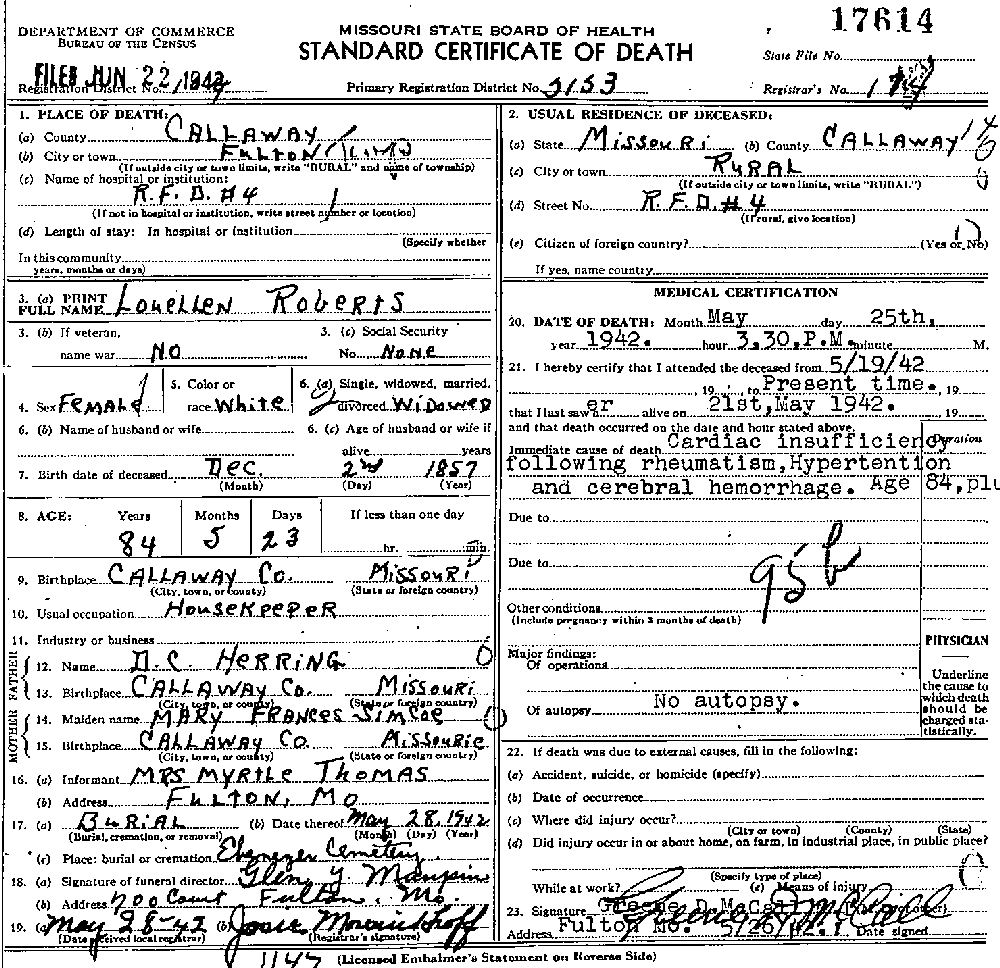 DEPARTMENT OF COMMERCE
BUREAU OF THE CENSUS
MISSOURI STATE BOARD OF HEALTH
STANDARD CERTIFICATE OF DEATH
17614
State File No.
FILED JUN 22 1942
Registration District No.
Primary Registration District No. 3153
Registrar's No.
1. PLACE OF DEATH:
(a) County CALLAWAY
(b) City or town FULTON
(If outside city or town limits, write "RURAL" and name of township)
(c) Name of hospital or institution:
R.F.D. #4
(If not in hospital or institution, write street number or location)
(d) Length of stay: In hospital or institution
(Specify whether
In this community
years, months or days)
2. USUAL RESIDENCE OF DECEASED:
(a) State MISSOURI (b) County CALLAWAY
(c) City or town RURAL
(If outside city or town limits, write "RURAL")
(d) Street No. R.F.D. #4
(If rural, give location)
(e) Citizen of foreign country? (Yes or No)
If yes, name country
3. (a) PRINT FULL NAME LOUELLEN ROBERTS
3. (b) If veteran, name war NO
3. (c) Social Security No. NONE
4. Sex FEMALE
5. Color or race WHITE
6. (a) Single, widowed, married, divorced WIDOWED
6. (b) Name of husband or wife
6. (c) Age of husband or wife if alive years
7. Birth date of deceased DEC. 2nd 1857
(Month) (Day) (Year)
8. AGE: Years Months Days If less than one day
84 5 23 hr. min.
9. Birthplace CALLAWAY CO. MISSOURI
(City, town, or county) (State or foreign country)
10. Usual occupation HOUSEKEEPER
11. Industry or business
FATHER
12. Name D.C. HERRING
13. Birthplace CALLAWAY CO. MISSOURI
(City, town, or county) (State or foreign country)
MOTHER
14. Maiden name MARY FRANCES SIMCOE
15. Birthplace CALLAWAY CO. MISSOURIE
(City, town, or county) (State or foreign country)
16. (a) Informant MRS MYRTLE THOMAS
(b) Address FULTON, MO
17. (a) BURIAL (b) Date thereof May 28, 1942
(Burial, cremation, or removal) (Month) (Day) (Year)
(c) Place: burial or cremation Ebenezer Cemetery
18. (a) Signature of funeral director Glen Y Maupin
(b) Address 700 Court Fulton, Mo.
19. (a) May 28-42 (b)
(Date received local registrar) (Registrar's signature)
1147
(Licensed Embalmer's Statement on Reverse Side)
MEDICAL CERTIFICATION
20. DATE OF DEATH: Month May day 25th,
year 1942. hour 3.30.P.M. minute M.
21. I hereby certify that I attended the deceased from 5/19/42
19 , to Present time. , 19
that I last saw er alive on 21st,May 1942. , 19
and that death occurred on the date and hour stated above.
Duration
Immediate cause of death Cardiac insufficiency
following rheumatism,Hypertention
and cerebral hemorrhage. Age 84,plu
Due to
Due to
95b
Other conditions
(Include pregnancy within 3 months of death)
Major findings:
Of operations
Of autopsy No autopsy.
PHYSICIAN
Underline the cause to which death should be charged statistically.
22. If death was due to external causes, fill in the following:
(a) Accident, suicide, or homicide (specify)
(b) Date of occurrence
(c) Where did injury occur?
(City or town) (County) (State)
(d) Did injury occur in or about home, on farm, in industrial place, in public place?
(Specify type of place)
While at work? (e) Means of injury
23. Signature Greene D McCall
Address Fulton Mo. 5/26/42. Date signed